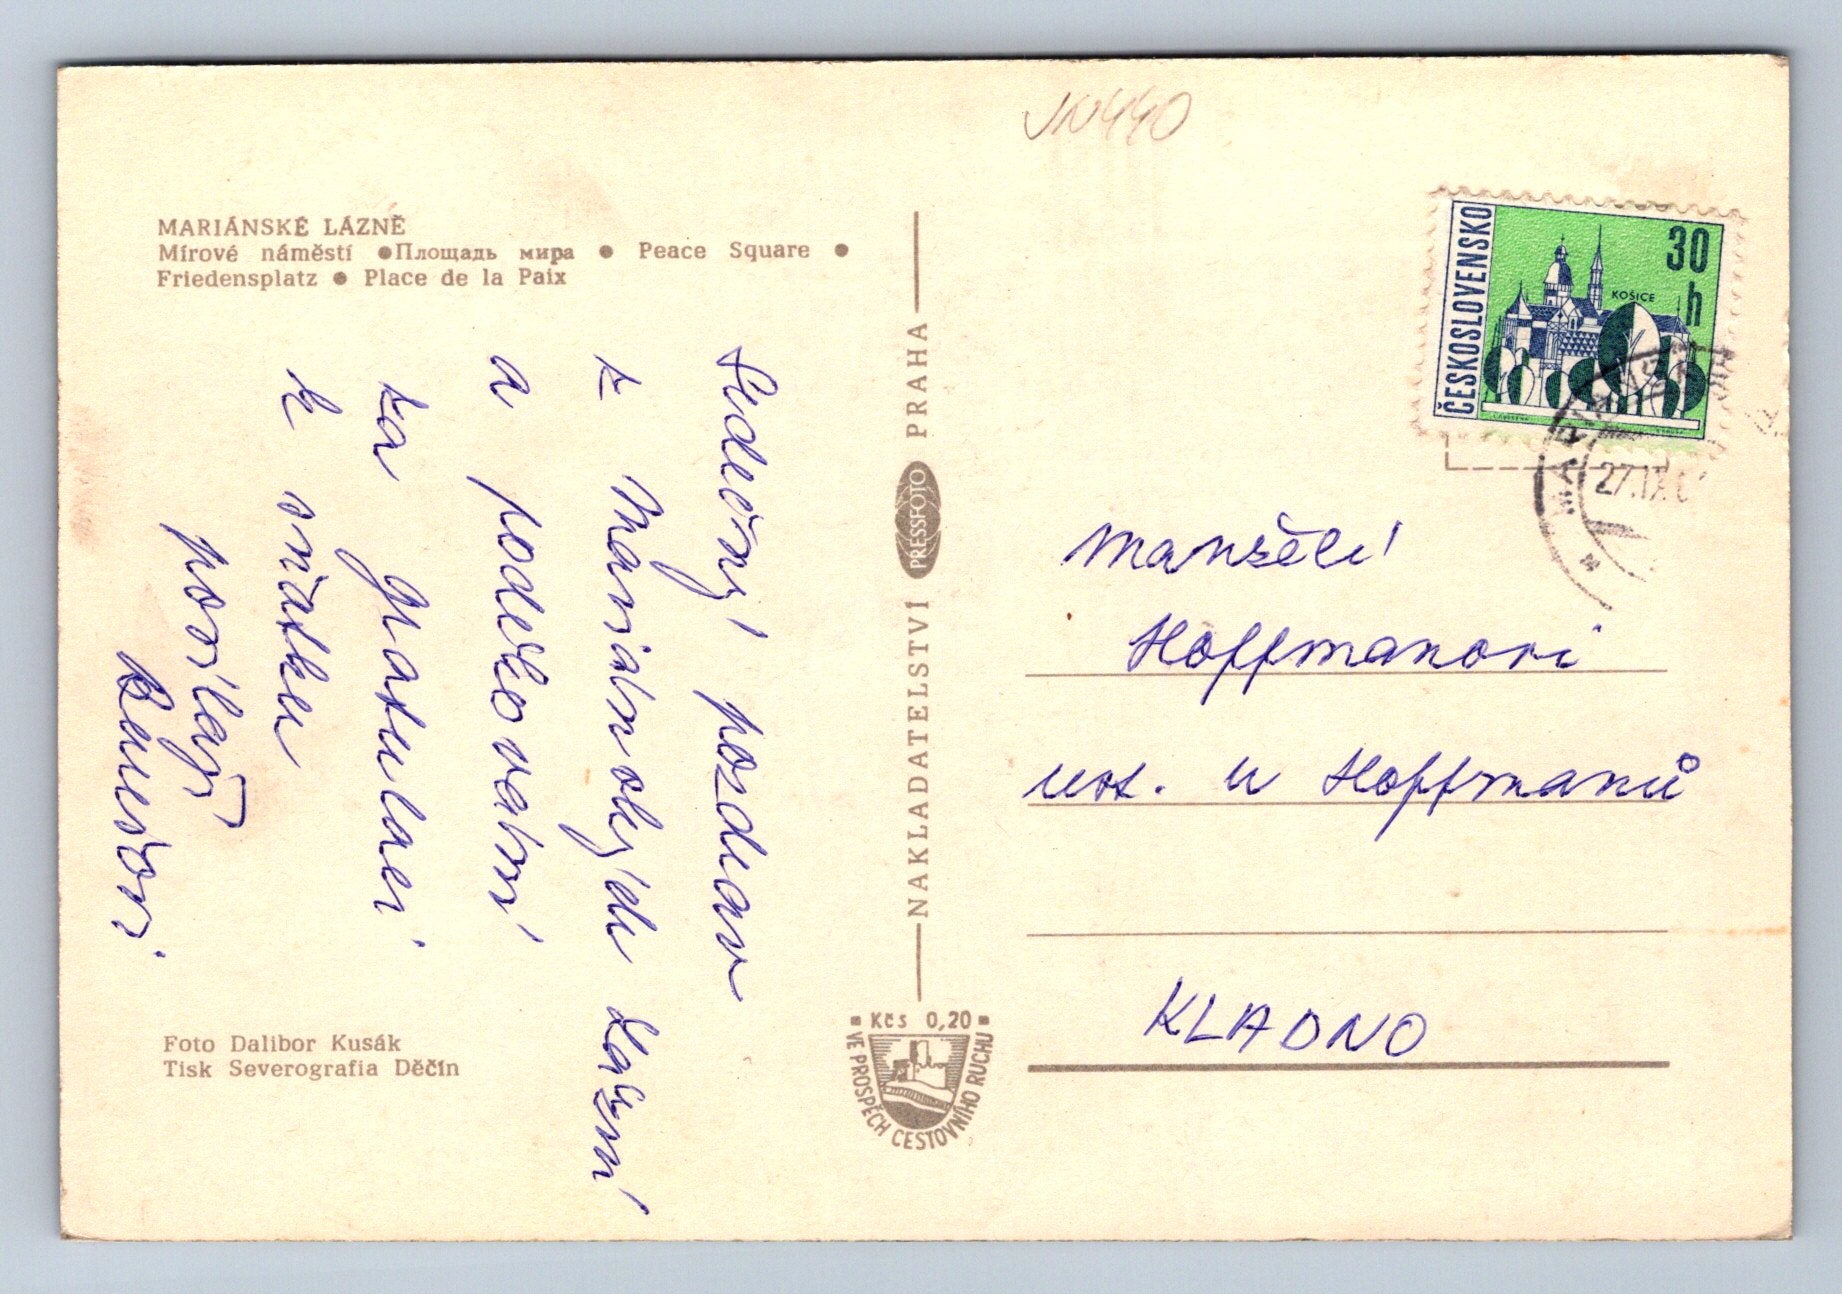 VN440
MARIÁNSKÉ LÁZNĚ
Mírové náměstí ● Площадь мира ● Peace Square ●
Friedensplatz ● Place de la Paix
Srdečný pozdrav
z Mariánských Lázní
a poděkování
za gratulaci
k sňatku
posílají
Foto Dalibor Kusák
Tisk Severografia Děčín
NAKLADATELSTVÍ PRESSFOTO PRAHA
Kčs 0,20
VE PROSPĚCH CESTOVNÍHO RUCHU
ČESKOSLOVENSKO
30
h
KOŠICE
27.IX.6
manželé
Hoffmanovi
u Hoffmanů
KLADNO